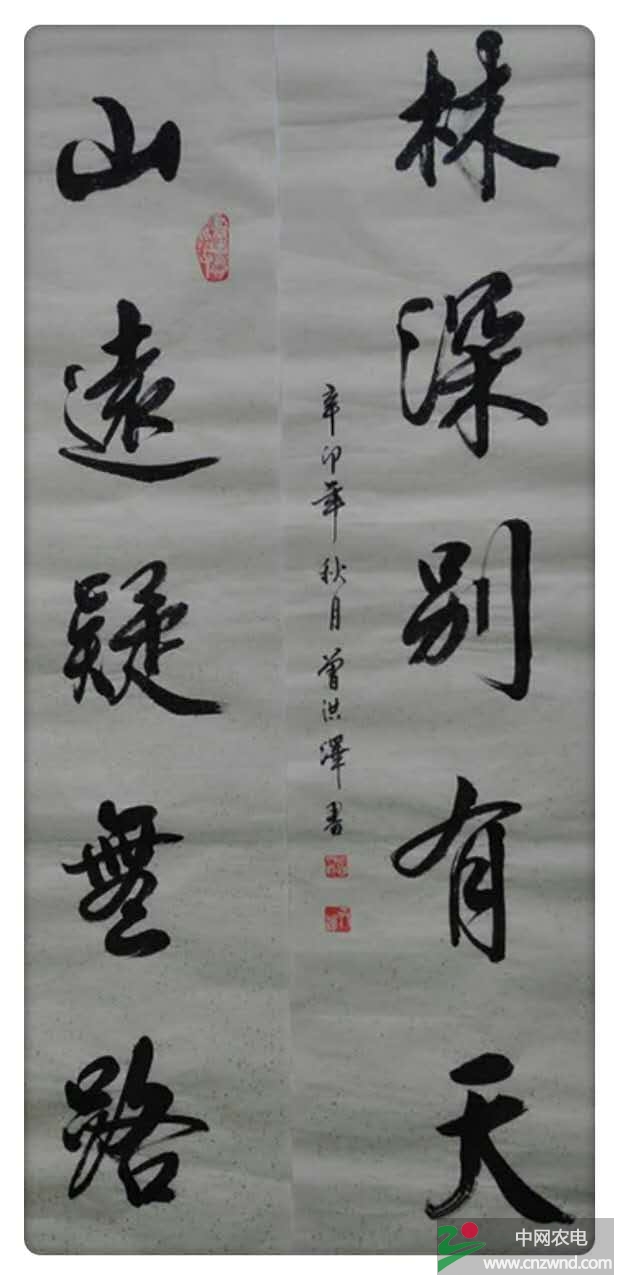 山遠疑無路
林深别有天
辛卯年秋月曾洪澤書
中网农电
www.cnzwnd.com